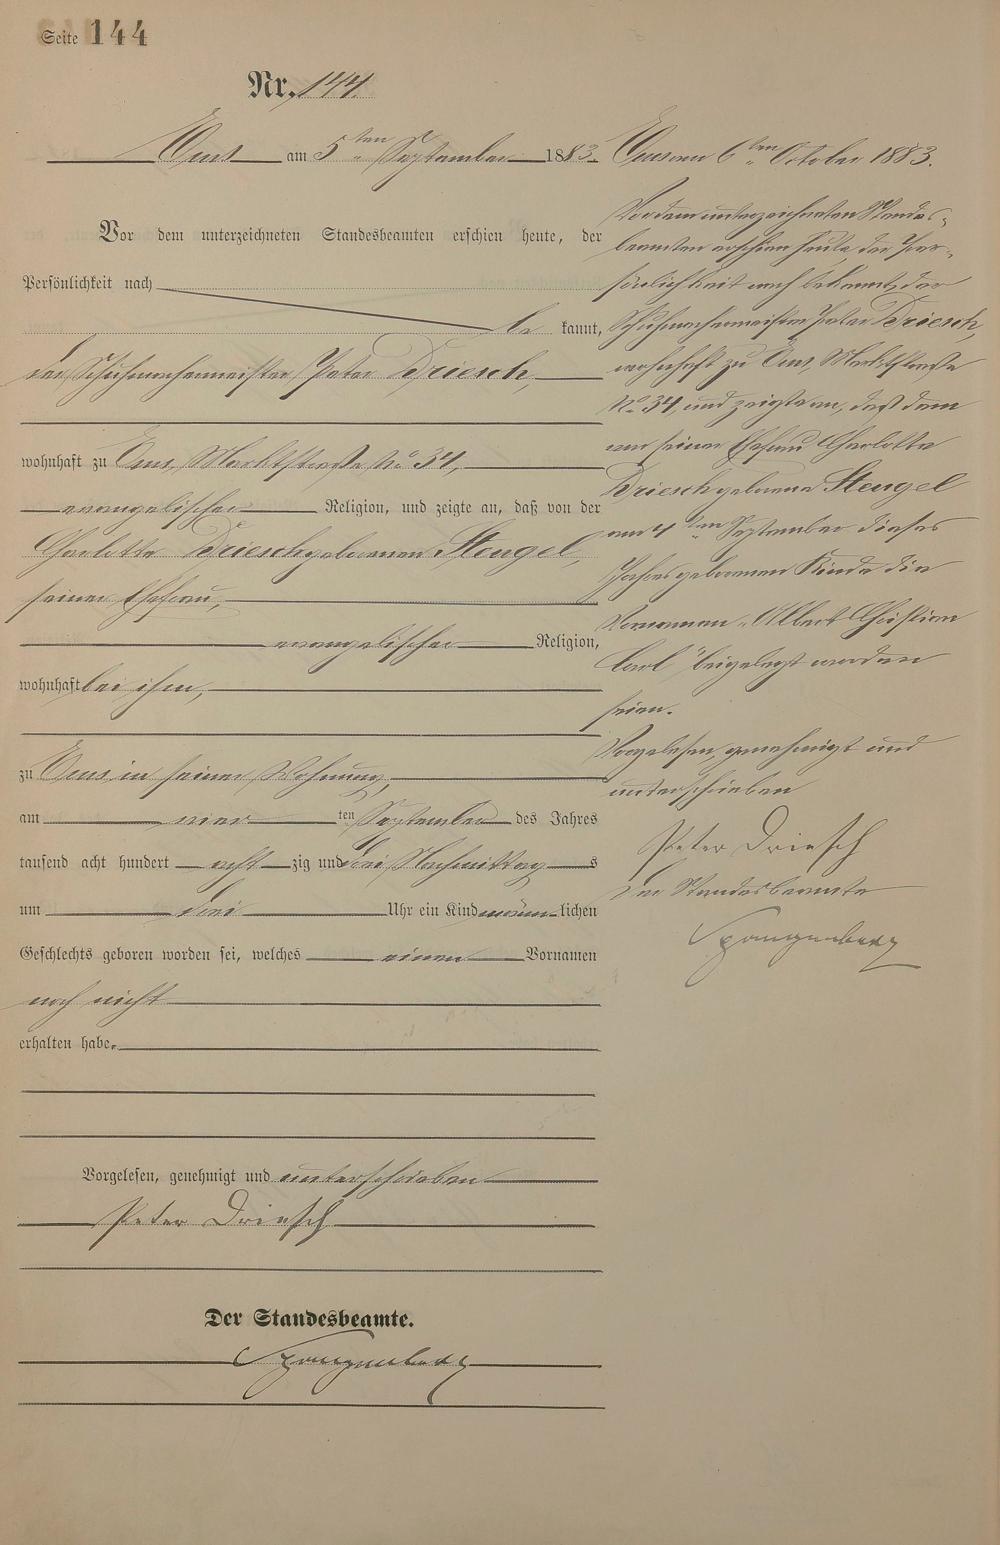 Seite 144
Nr. 144.
Ems am 5ten September 1883.
Vor dem unterzeichneten Standesbeamten erschien heute, der
Persönlichkeit nach
be kannt,
der Schuhmachermeister Peter Driesch,
wohnhaft zu Ems, Marktstraße No 34,
evangelischer Religion, und zeigte an, daß von der
Charlotte Driesch geborenen Stengel,
seiner Ehefrau,
evangelischer Religion,
wohnhaft bei ihm,
zu Ems in seiner Wohnung,
am vier ten September des Jahres
tausend acht hundert acht zig und drei Nachmittag s
um drei Uhr ein Kind männ lichen
Geschlechts geboren worden sei, welches einen Vornamen
noch nicht
erhalten habe.
Vorgelesen, genehmigt und unterschrieben
Peter Driesch
Der Standesbeamte.
Spangenberg
Ems am 6ten October 1883.
Vor dem unterzeichneten Standes-
beamten erschien heute, der Per-
sönlichkeit nach bekannt, der
Schuhmachermeister Peter Driesch,
wohnhaft zu Ems, Marktstraße
No 34, und zeigte an, daß dem
von seiner Ehefrau Charlotte
Driesch geborene Stengel
am 4ten September dieses
Jahres geborenen Kinde die
Vornamen „Albert Christian
Carl" beigelegt worden
seien.
Vorgelesen, genehmigt und
unterschrieben
Peter Driesch
Der Standesbeamte
Spangenberg